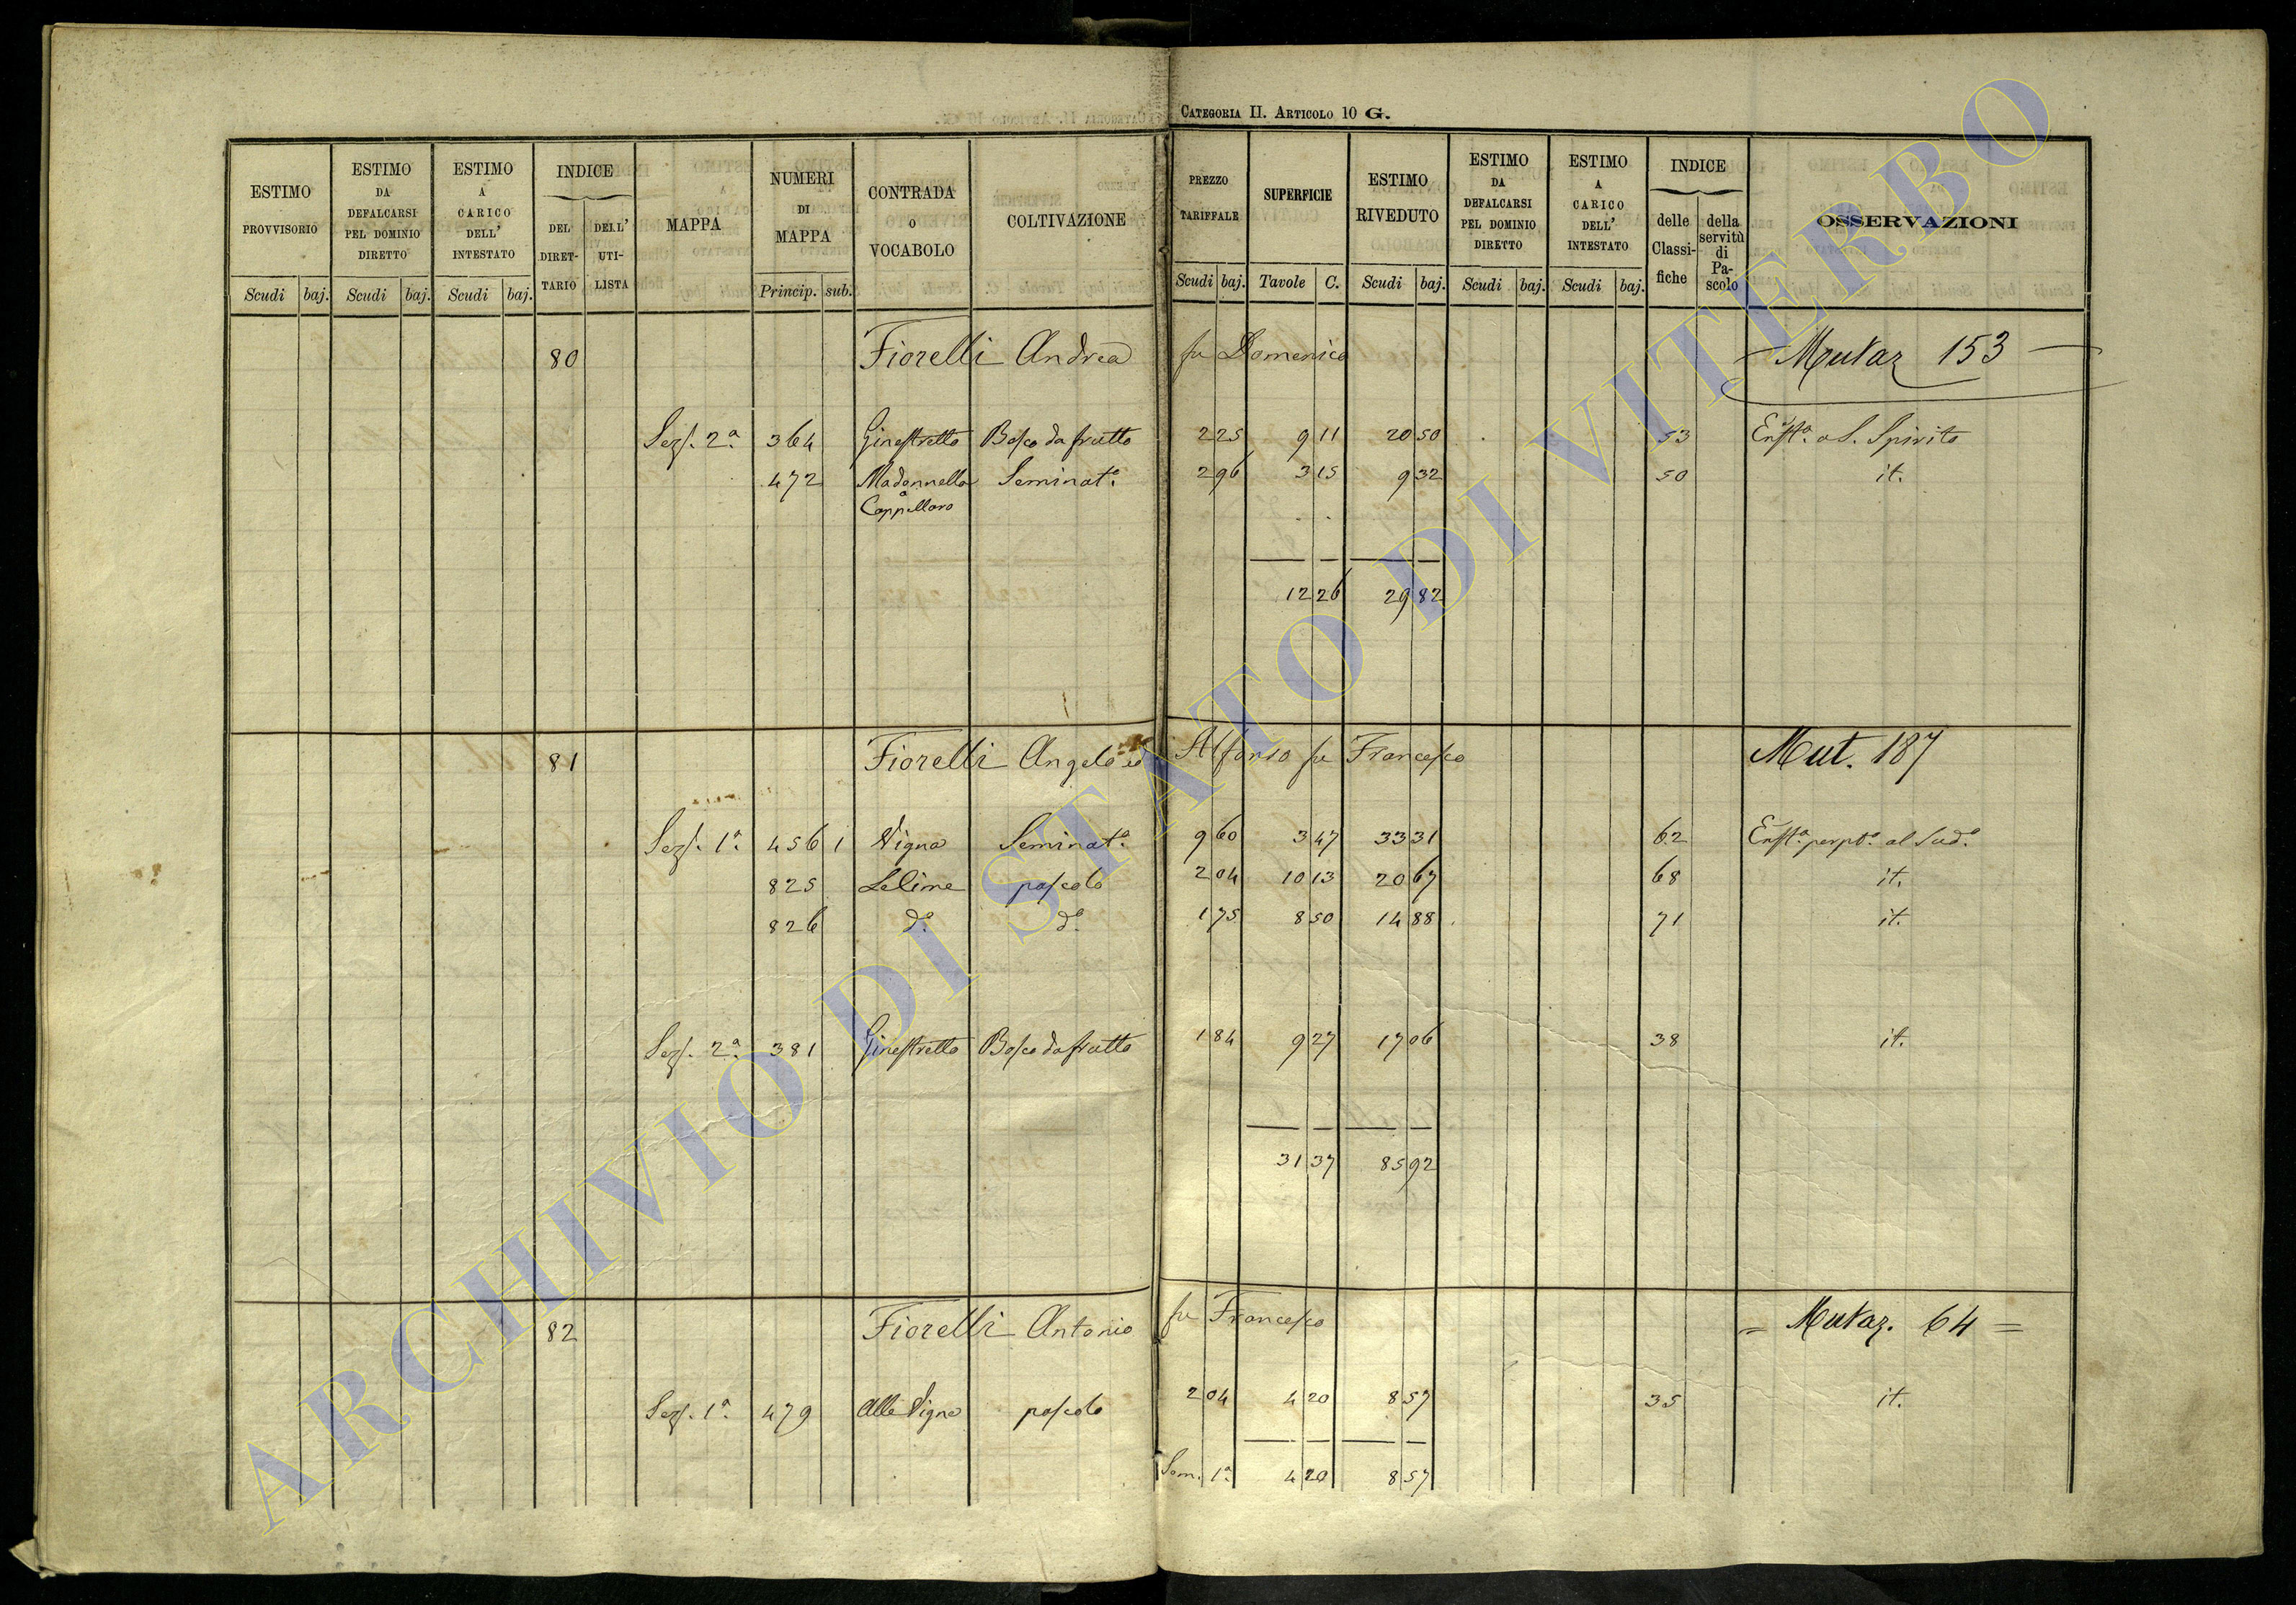 CATEGORIA II. ARTICOLO 10 G.
ESTIMO PROVVISORIO Scudi baj.
ESTIMO DA DEFALCARSI PEL DOMINIO DIRETTO Scudi baj.
ESTIMO A CARICO DELL' INTESTATO Scudi baj.
INDICE DEL DIRETTARIO DELL' UTILISTA
MAPPA
NUMERI DI MAPPA Princip. sub.
CONTRADA O VOCABOLO
COLTIVAZIONE
PREZZO TARIFFALE Scudi baj.
SUPERFICIE Tavole C.
ESTIMO RIVEDUTO Scudi baj.
ESTIMO DA DEFALCARSI PEL DOMINIO DIRETTO Scudi baj.
ESTIMO A CARICO DELL' INTESTATO Scudi baj.
INDICE delle Classifiche della servitù di Pascolo
OSSERVAZIONI
80 Fiorelli Andrea fu Domenico Mutaz 153
Sez. 2a. 364 Ginestretto Bosco da frutto 2 25 9 11 20 50 53 Enfta. a S. Spirito
472 Madonnella a Cappellaro Seminato. 2 96 3 15 9 32 50 it.
12 26 29 82
81 Fiorelli Angelo ed Alfonso fu Francesco Mut. 187
Sez. 1a. 456 1 Vigna Seminato. 9 60 3 47 33 31 62 Enfta. perpta. al Sudo.
825 Lelime pascolo 2 04 10 13 20 67 68 it.
826 do. do. 1 75 8 50 14 88 71 it.
Sez. 2a. 381 Ginestretto Bosco da frutto 1 84 9 27 17 06 38 it.
31 37 85 92
82 Fiorelli Antonio fu Francesco = Mutaz. 64 =
Sez. 1a. 479 Alle Vigne pascolo 2 04 4 20 8 57 35 it.
Som. 1a. 4 20 8 57
ARCHIVIO DI STATO DI VITERBO